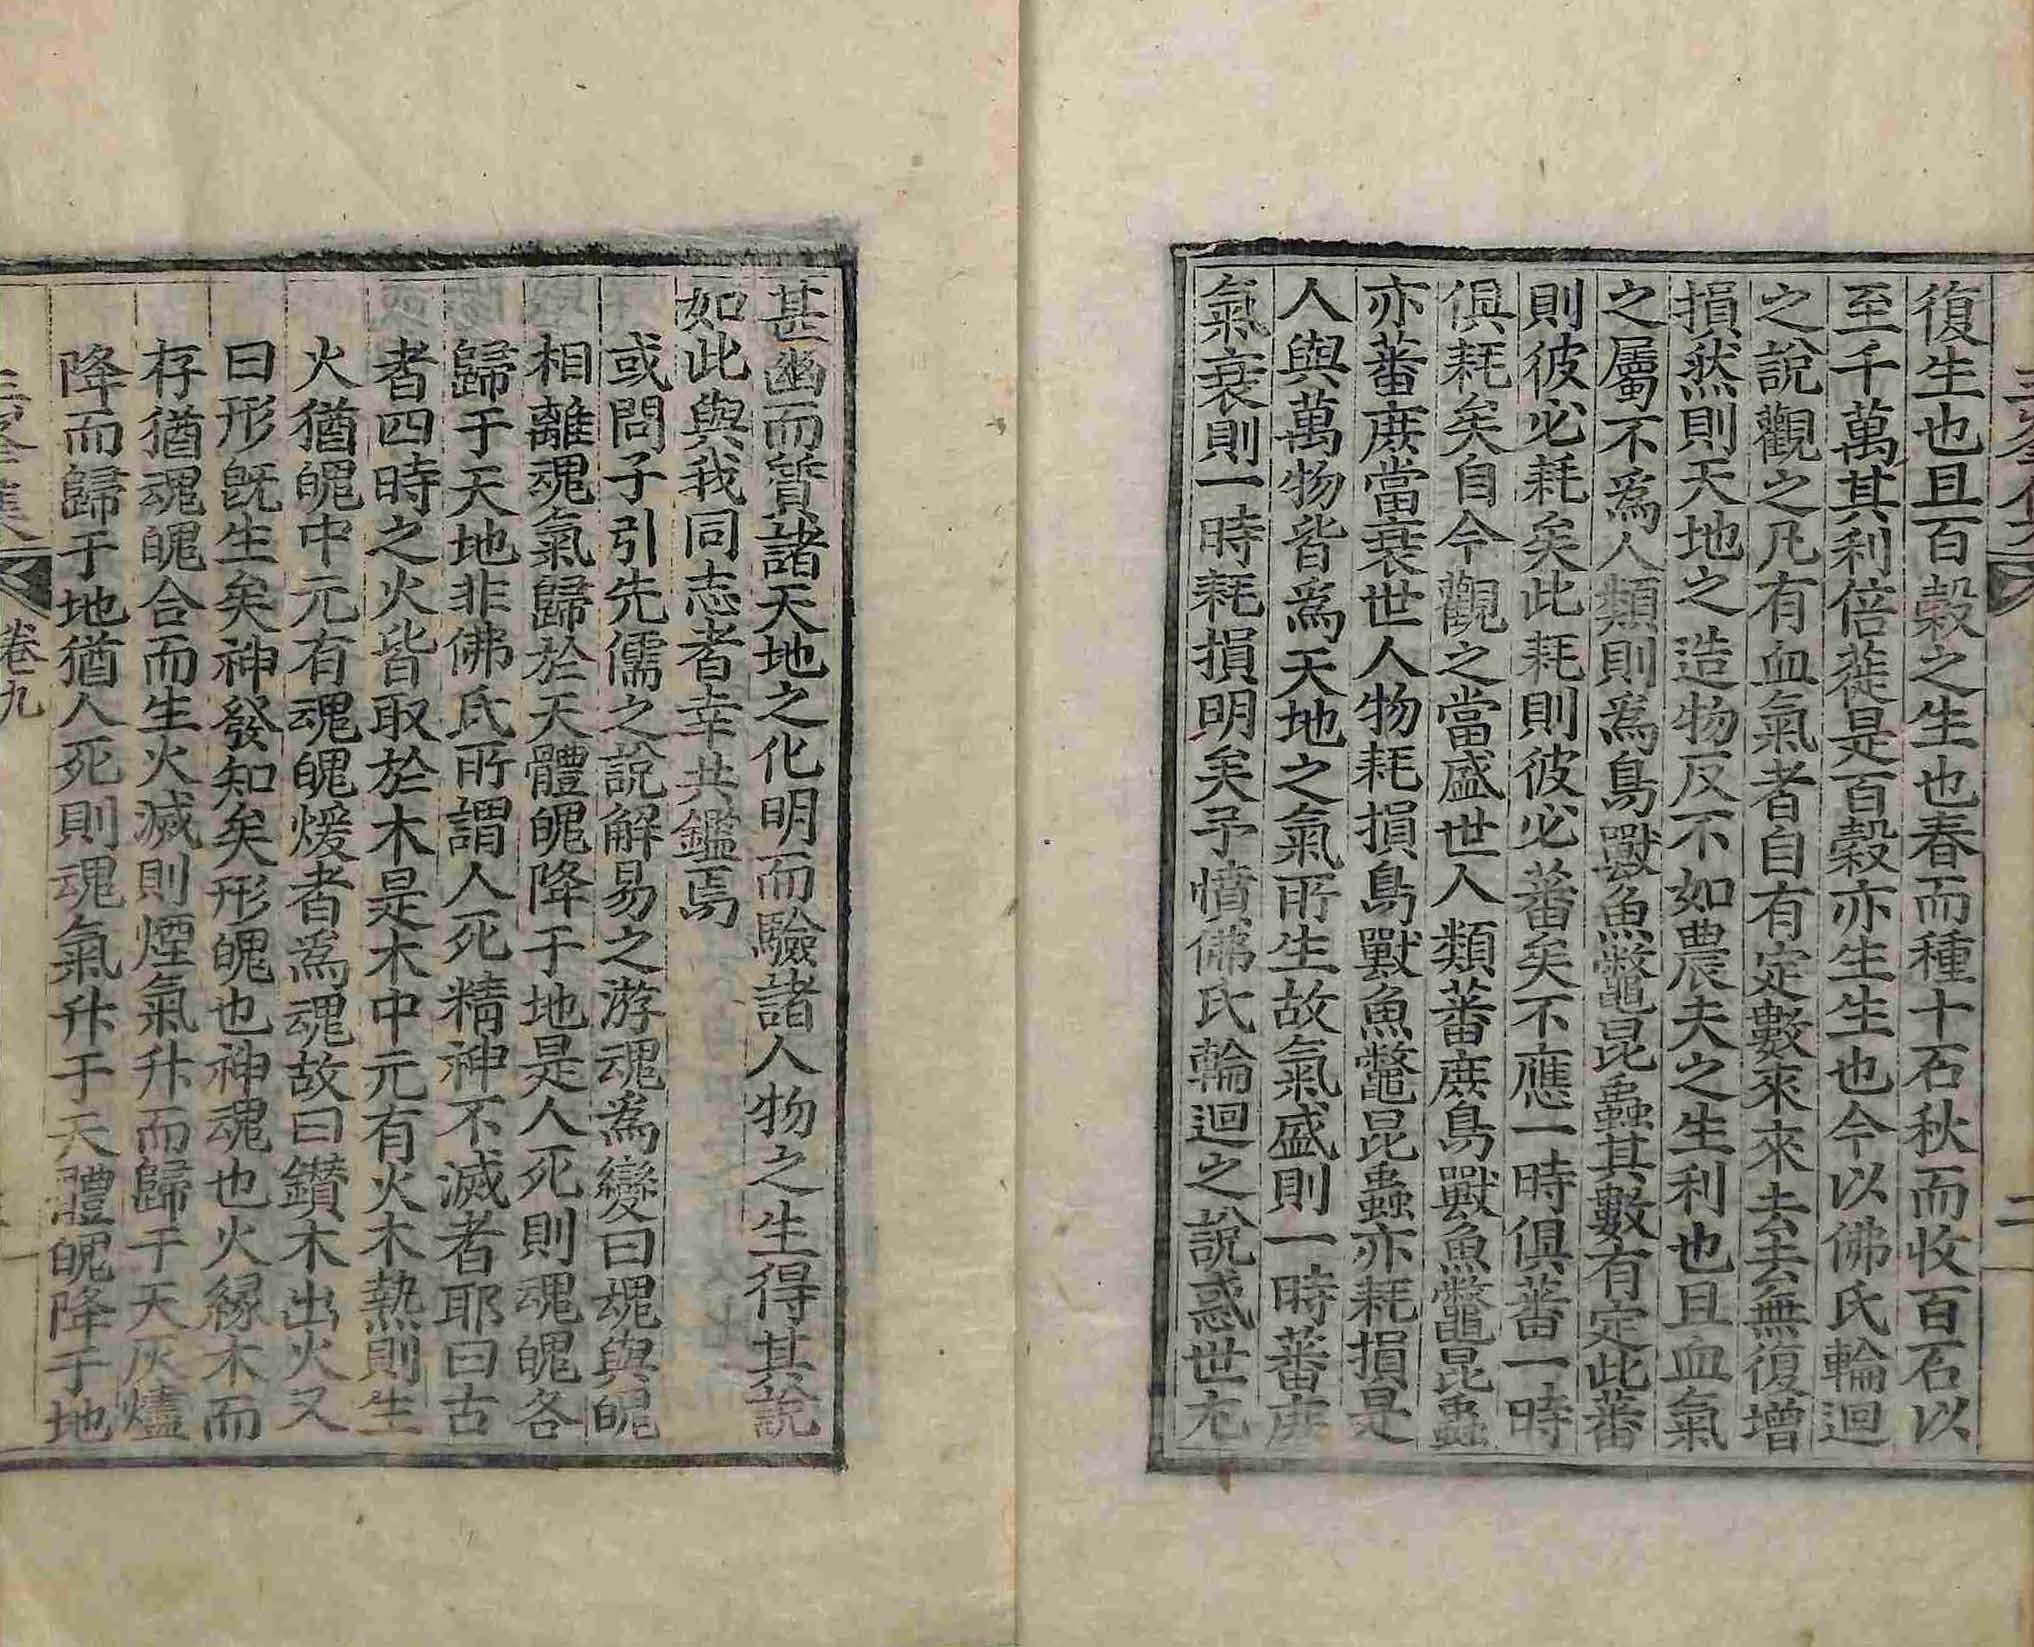 復生也且百穀之生也春而種十石秋而收百石以
至千萬其利倍蓰是百穀亦生生也今以佛氏輪迴
之說觀之凡有血氣者自有定數來來去去無復增
損然則天地之造物反不如農夫之生利也且血氣
之屬不爲人類則爲鳥獸魚鼈昆蟲其數有定此蕃
則彼必耗矣此耗則彼必蕃矣不應一時俱蕃一時
俱耗矣自今觀之當盛世人類蕃庶鳥獸魚鼈昆蟲
亦蕃庶當衰世人物耗損鳥獸魚鼈昆蟲亦耗損是
人與萬物皆爲天地之氣所生故氣盛則一時蕃庶
氣衰則一時耗損明矣予憤佛氏輪迴之說惑世尤
甚幽而質諸天地之化明而驗諸人物之生得其說
如此與我同志者幸共鑑焉
或問子引先儒之說解易之游魂爲變曰魂與魄
相離魂氣歸於天體魄降于地是人死則魂魄各
歸于天地非佛氏所謂人死精神不滅者耶曰古
者四時之火皆取於木是木中元有火木熱則生
火猶魄中元有魂魄煖者爲魂故曰鑽木出火又
曰形旣生矣神發知矣形魄也神魂也火緣木而
存猶魂魄合而生火滅則煙氣升而歸于天灰燼
降而歸于地猶人死則魂氣升于天體魄降于地
卷九